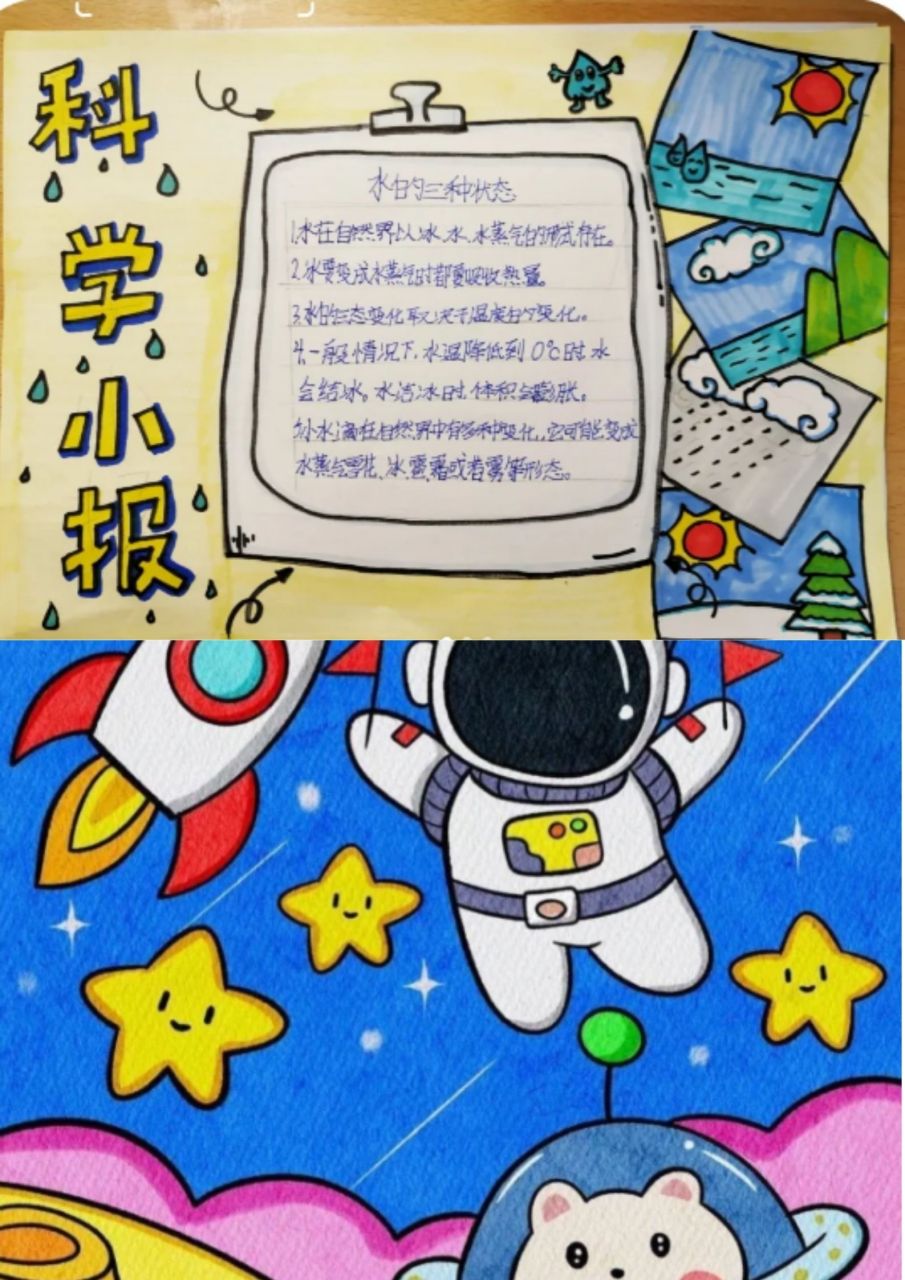 科学小报
水的三种状态
1.水在自然界以冰、水、水蒸气的形式存在。
2.冰要变成水蒸气时都要吸收热量。
3.水的三态变化取决于温度的变化。
4.一般情况下,水温降低到0℃时水
会结冰。水结冰时体积会膨胀。
5.小水滴在自然界中有多种变化,它可能变成
水蒸气雪花、冰雹露或者雾等形态。